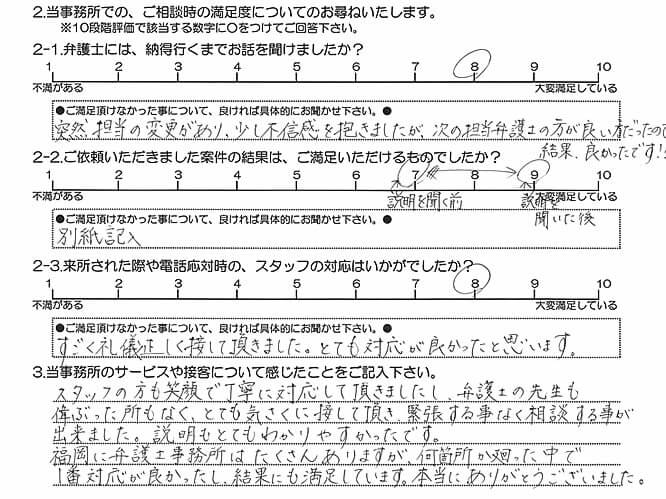 2.当事務所での、ご相談時の満足度についてのお尋ねいたします。
※10段階評価で該当する数字に○をつけてご回答下さい。
2-1.弁護士には、納得行くまでお話を聞けましたか?
1 2 3 4 5 6 7 8 9 10
不満がある 大変満足している
●ご満足頂けなかった事について、良ければ具体的にお聞かせ下さい。●
突然、担当の変更があり、少し不信感を抱きましたが、次の担当弁護士の方が良い方だったので
結果、良かったです!!
2-2.ご依頼いただきました案件の結果は、ご満足いただけるものでしたか?
1 2 3 4 5 6 7 8 9 10
不満がある 大変満足している
説明を聞く前 説明を
聞いた後
●ご満足頂けなかった事について、良ければ具体的にお聞かせ下さい。●
別紙記入
2-3.来所された際や電話応対時の、スタッフの対応はいかがでしたか?
1 2 3 4 5 6 7 8 9 10
不満がある 大変満足している
●ご満足頂けなかった事について、良ければ具体的にお聞かせ下さい。●
すごく礼儀正しく接して頂きました。とても対応が良かったと思います。
3.当事務所のサービスや接客について感じたことをご記入下さい。
スタッフの方も笑顔で丁寧に対応して頂きましたし、弁護士の先生も
偉ぶった所もなく、とても気さくに接して頂き、緊張する事なく相談する事が
出来ました。説明もとてもわかりやすかったです。
福岡に弁護士事務所はたくさんありますが、何箇所か廻った中で
1番対応が良かったし、結果にも満足しています。本当にありがとうございました。